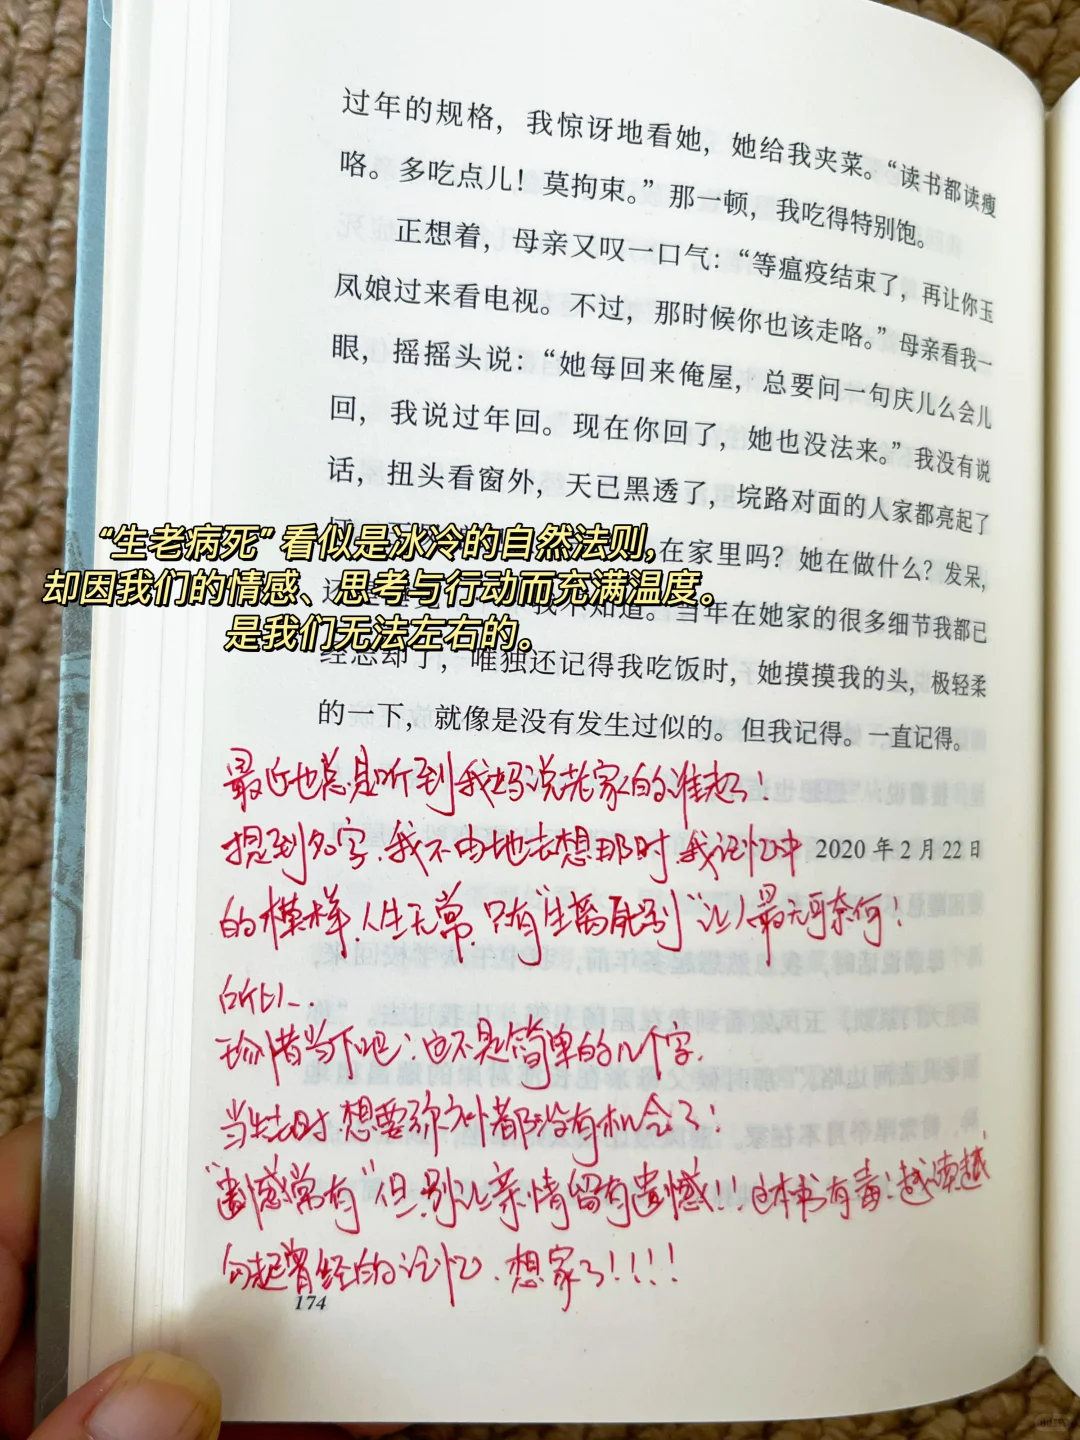 过年的规格，我惊讶地看她，她给我夹菜。“读书都读瘦
咯。多吃点儿！莫拘束。”那一顿，我吃得特别饱。
正想着，母亲又叹一口气：“等瘟疫结束了，再让你玉
凤娘过来看电视。不过，那时候你也该走咯。”母亲看我一
眼，摇摇头说：“她每回来俺屋，总要问一句庆儿么会儿
回，我说过年回。现在你回了，她也没法来。”我没有说
话，扭头看窗外，天已黑透了，垸路对面的人家都亮起了
在家里吗？她在做什么？发呆，
“生老病死”看似是冰冷的自然法则，
却因我们的情感、思考与行动而充满温度。
是我们无法左右的。
我不知道。当年在她家的很多细节我都已
经忘却了，唯独还记得我吃饭时，她摸摸我的头，极轻柔
的一下，就像是没有发生过似的。但我记得。一直记得。
最近也总是听到我妈说老家的谁走了！
提到名字，我不由地去想那时我记忆中
2020年2月22日
的模样，人生无常，只有“生离死别”让人最无可奈何！
所以、
珍惜当下吧：也不是简单的几个字，
当失去时，想要弥补都没有机会了！
“遗憾常有”但，别让亲情留有遗憾！！！这本书有毒！越读越
勾起曾经的记忆、想家了！！！！
174